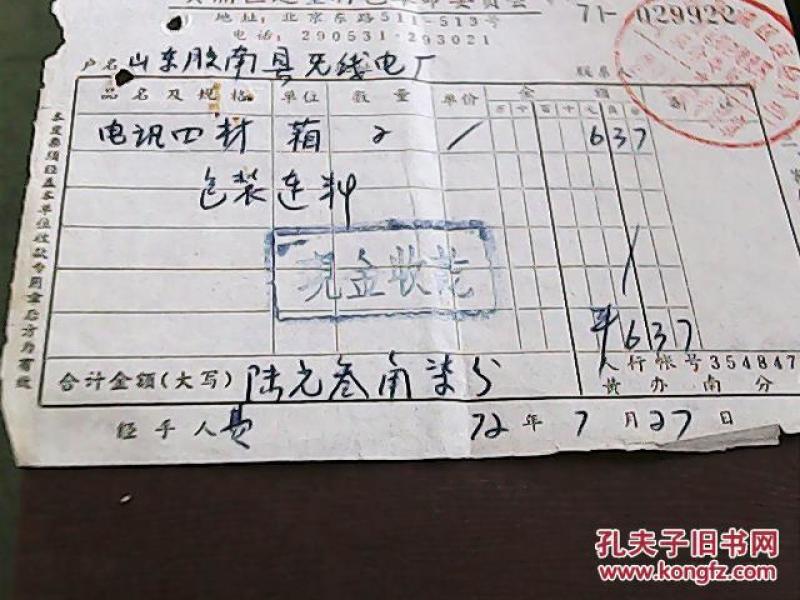 地址：北京东路511-513号
71-029922
电话：290531·293021
户名 山东胶南县无线电厂
品名及规格 单位 数量 单价 金额 备注
电讯四材 箱 2 / 637
包装连料
现金收讫
¥637
合计金额(大写) 陆元叁角柒分
人行帐号354847
黄办南分
经手人
72年7月27日
本发票须经盖本单位收款专用章后方为有效
孔夫子旧书网
www.kongfz.com